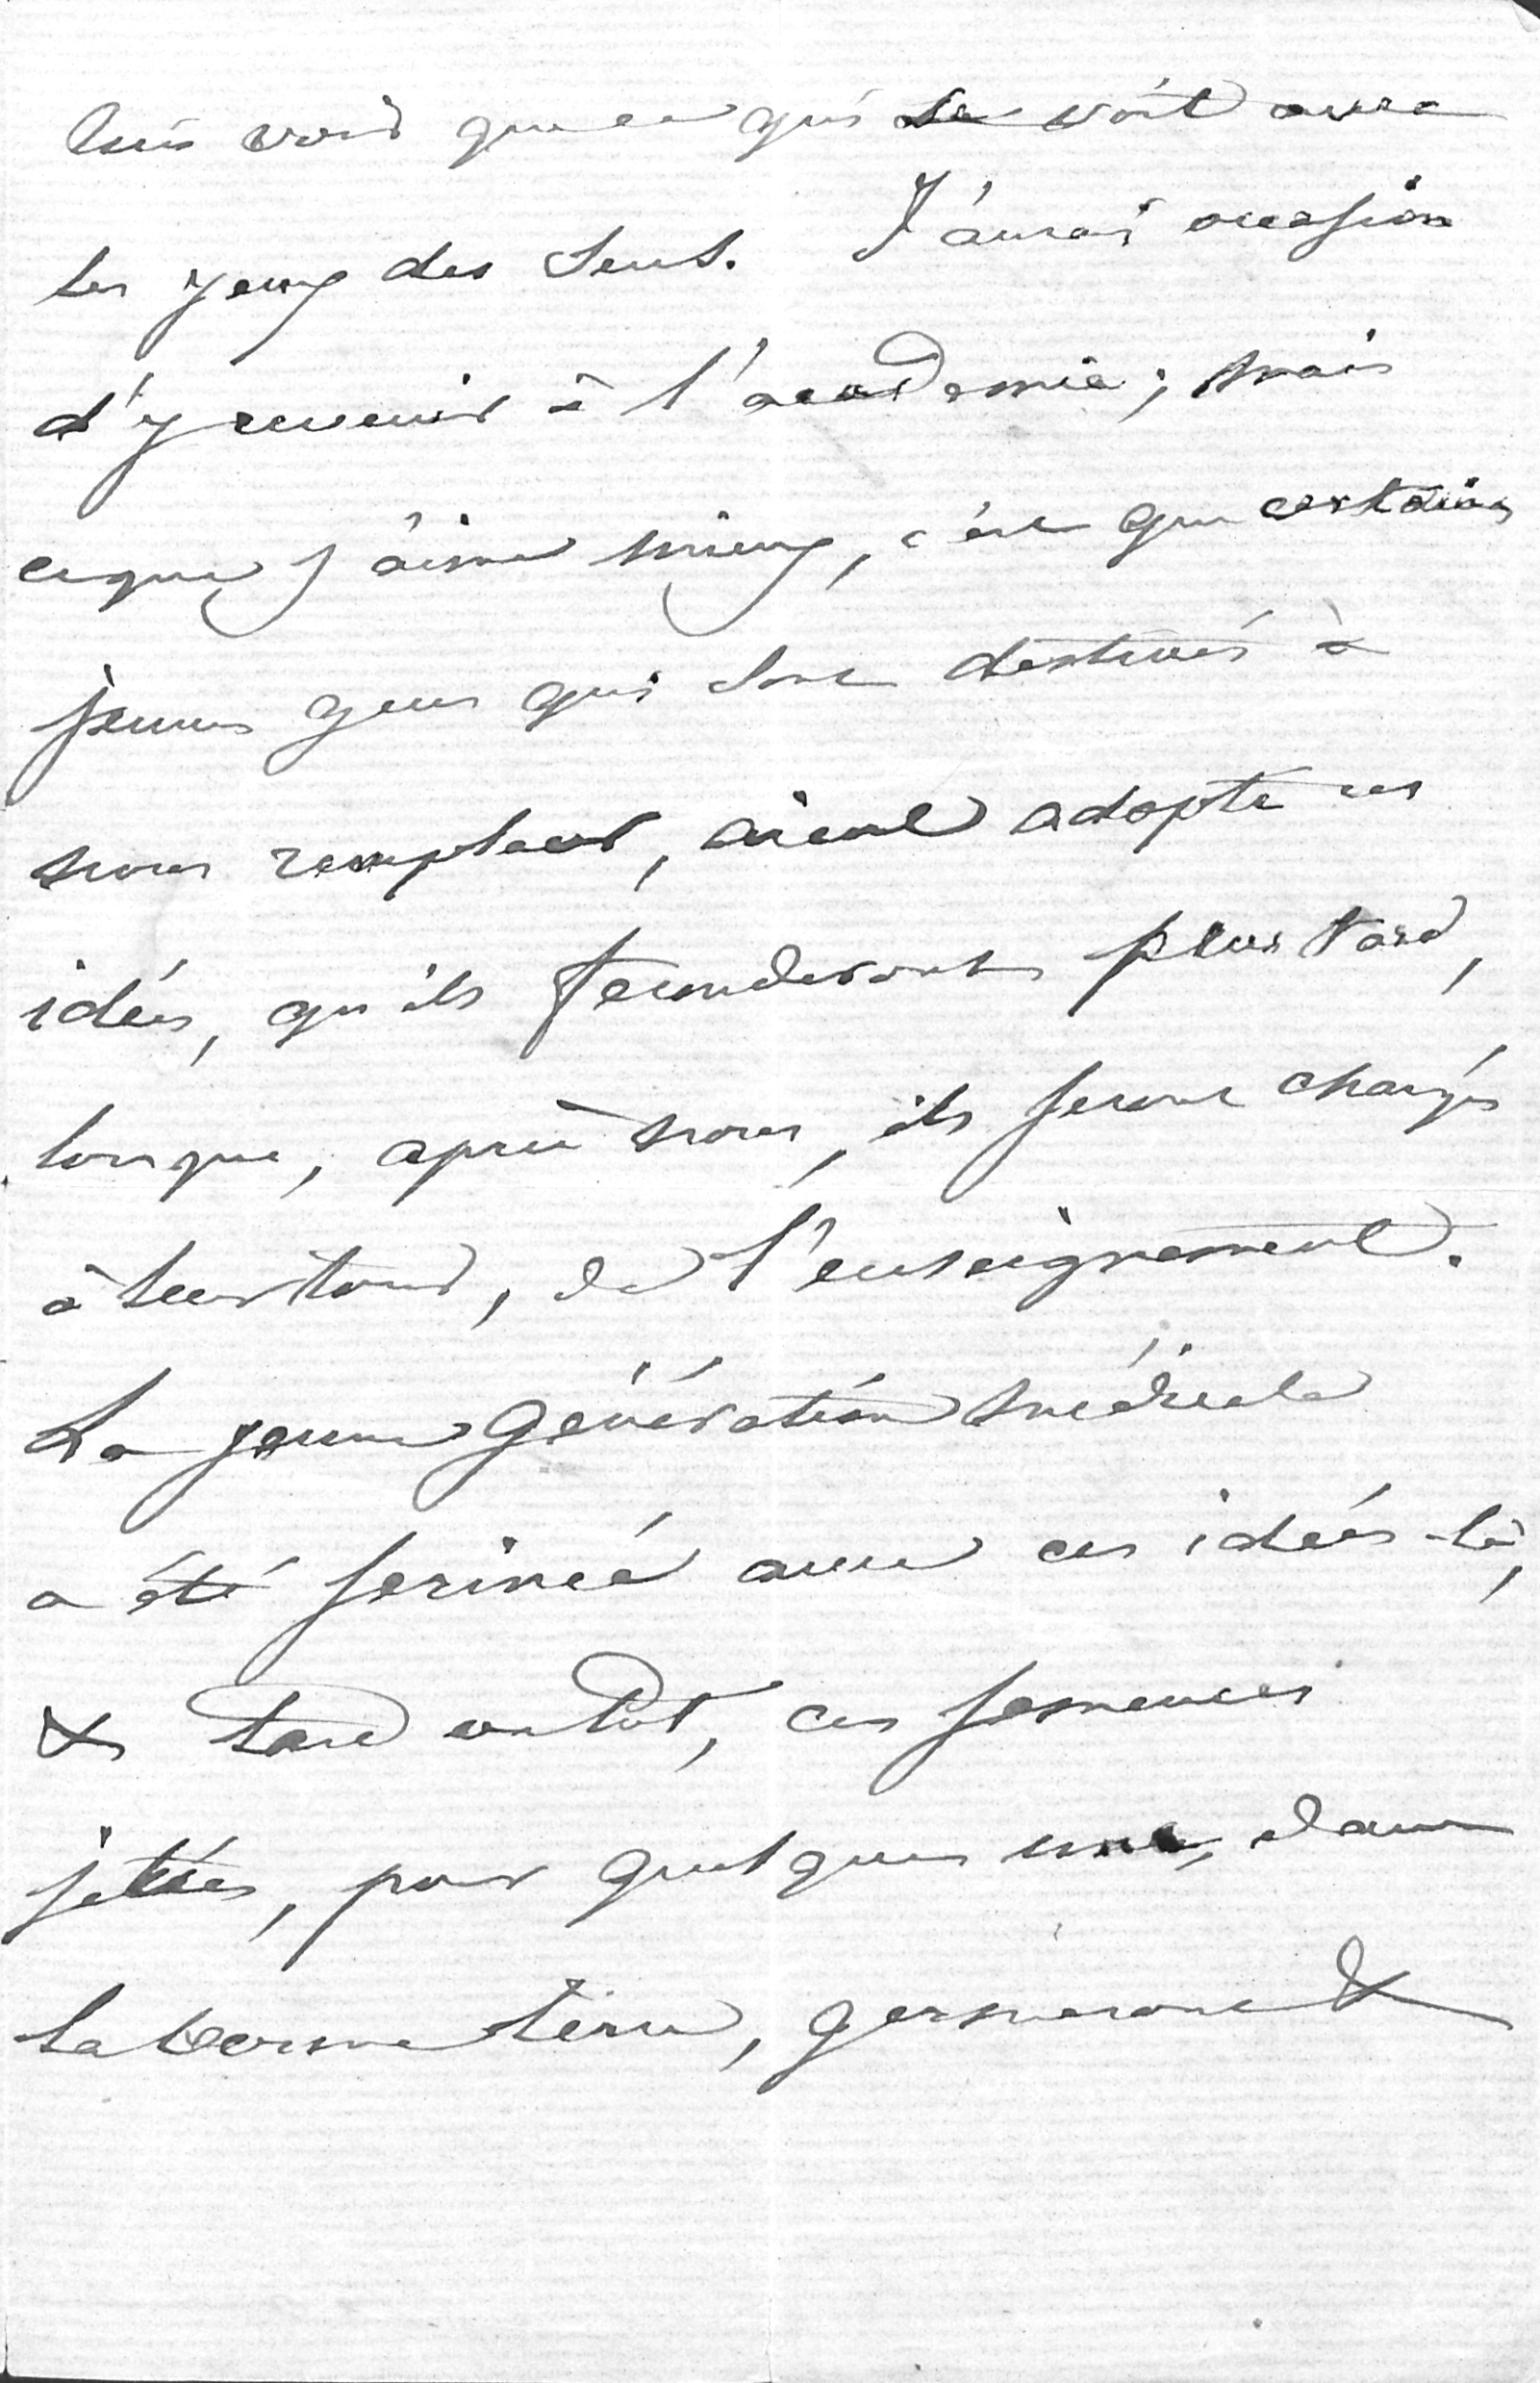 voir que ce qui se voit avec
les yeux des sens. J'aurai occasion
d'y revenir à l'académie ; mais
ce que j'aime mieux, c'est que certains
jeunes gens qui sont destinés à
nous remplacer, aient adopté ces
idées, qu'ils féconderont plus tard,
lorsque, après nous, ils seront chargés
à leur tour, de l'enseignement.
La jeune génération médicale
a été serinée avec ces idées-là,
& tard ou tôt, ces semences
jettées, pour quelques unes, dans
la bonne terre, germeront &